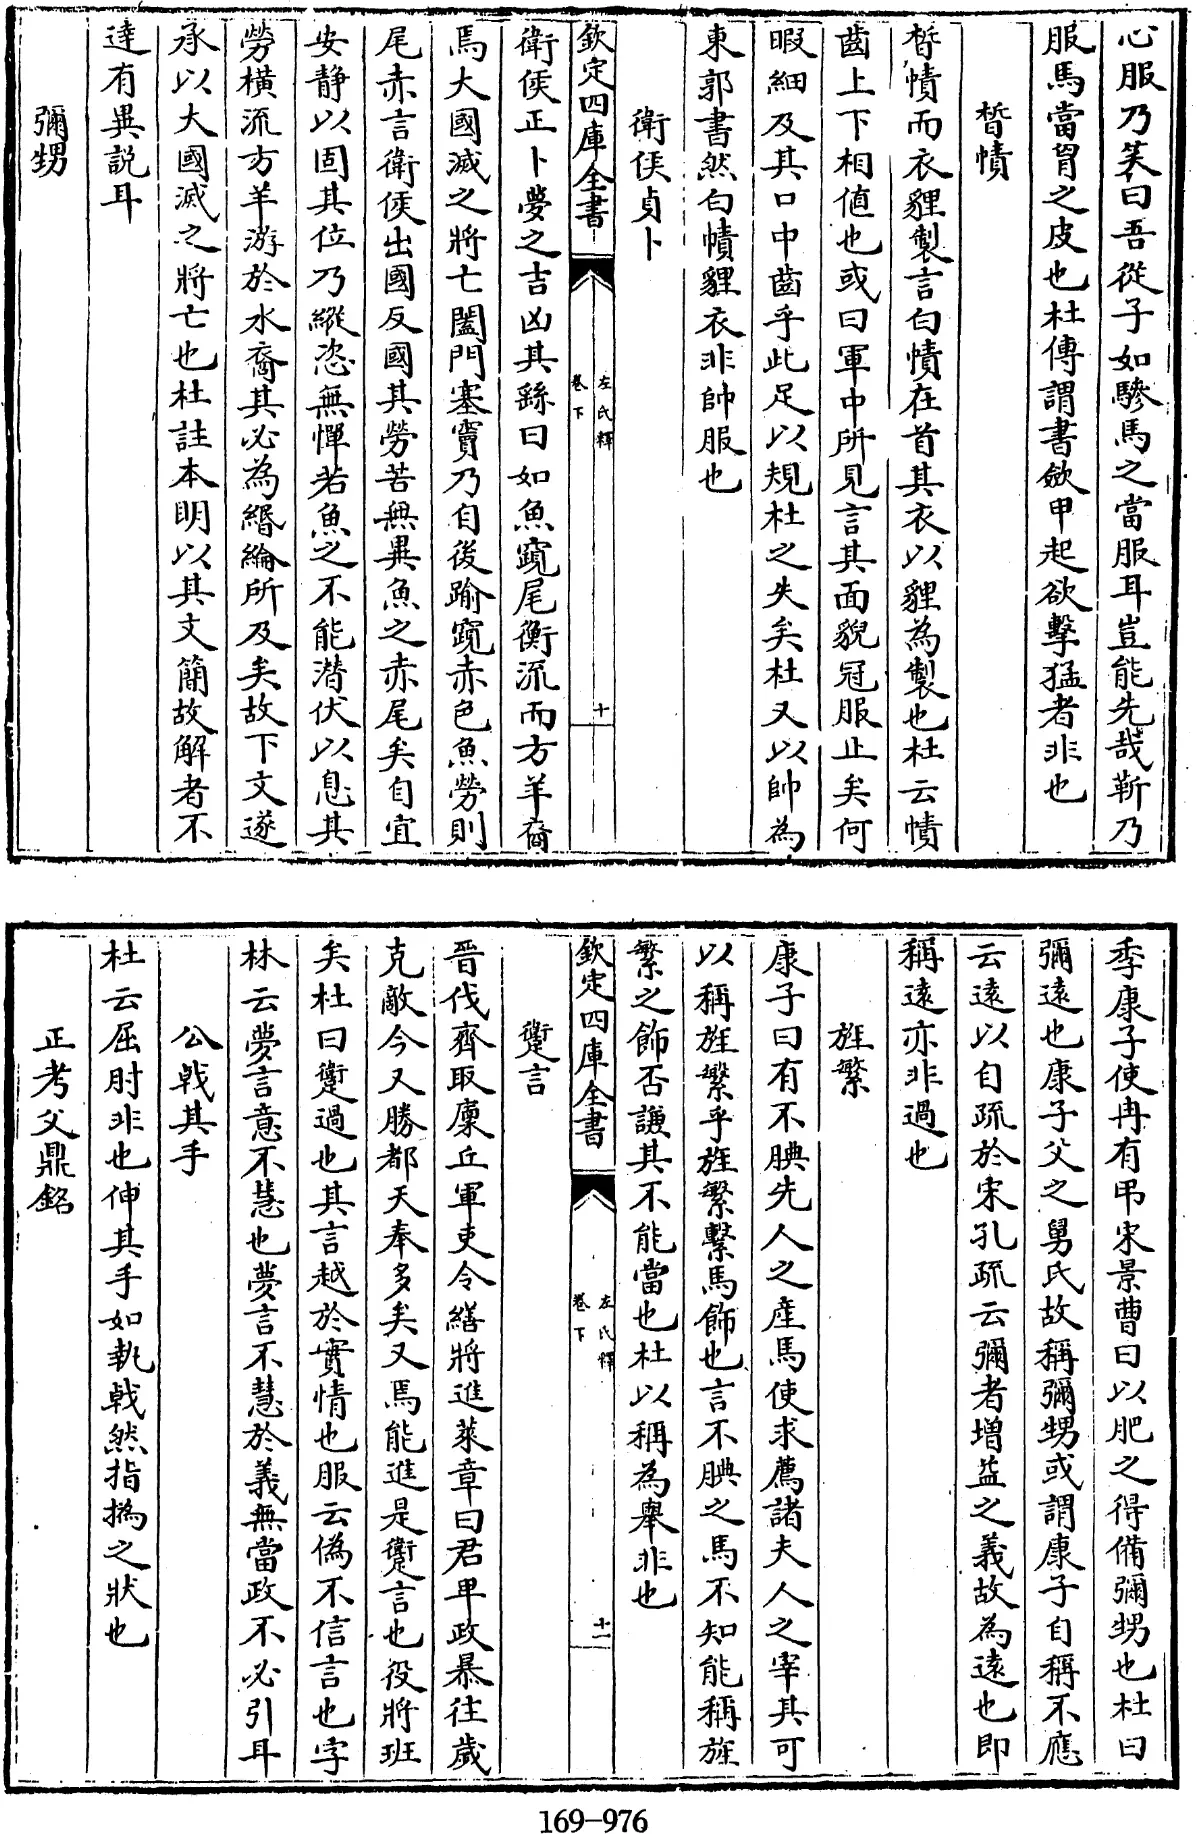 心服乃笑曰吾從子如驂馬之當服耳豈能先哉靳乃
服馬當胷之皮也杜傳謂書斂甲起欲擊猛者非也
晳幘
晳幘而衣貍製言白幘在首其衣以貍為製也杜云幘
齒上下相值也或曰軍中所見言其面貌冠服止矣何
暇細及其口中齒乎此足以規杜之失矣杜又以帥為
東郭書然白幘貍衣非帥服也
衛侯貞卜
欽定四庫全書
左氏釋
卷下
十
衛侯正卜夢之吉凶其繇曰如魚竀尾衡流而方羊裔
焉大國滅之將亡闔門塞竇乃自後踰竀赤色魚勞則
尾赤言衛侯出國反國其勞苦無異魚之赤尾矣自宜
安靜以固其位乃縱恣無憚若魚之不能潛伏以息其
勞橫流方羊游於水裔其必為緡綸所及矣故下文遂
承以大國滅之將亡也杜註本明以其文簡故解者不
達有異説耳
彌甥
季康子使冉有弔宋景曹曰以肥之得備彌甥也杜曰
彌遠也康子父之舅氏故稱彌甥或謂康子自稱不應
云遠以自疏於宋孔疏云彌者增益之義故為遠也即
稱遠亦非過也
旌繁
康子曰有不腆先人之産馬使求薦諸夫人之宰其可
以稱旌繁乎旌繁繫馬飾也言不腆之馬不知能稱旌
繁之飾否謙其不能當也杜以稱為舉非也
欽定四庫全書
左氏釋
卷下
十一
躗言
晉伐齊取廩丘軍吏令繕將進萊章曰君卑政暴往歲
克敵今又勝都天奉多矣又焉能進是躗言也役將班
矣杜曰躗過也其言越於實情也服云偽不信言也字
林云夢言意不慧也夢言不慧於義無當政不必引耳
公戟其手
杜云屈肘非也伸其手如執戟然指撝之狀也
正考父鼎銘
169-976